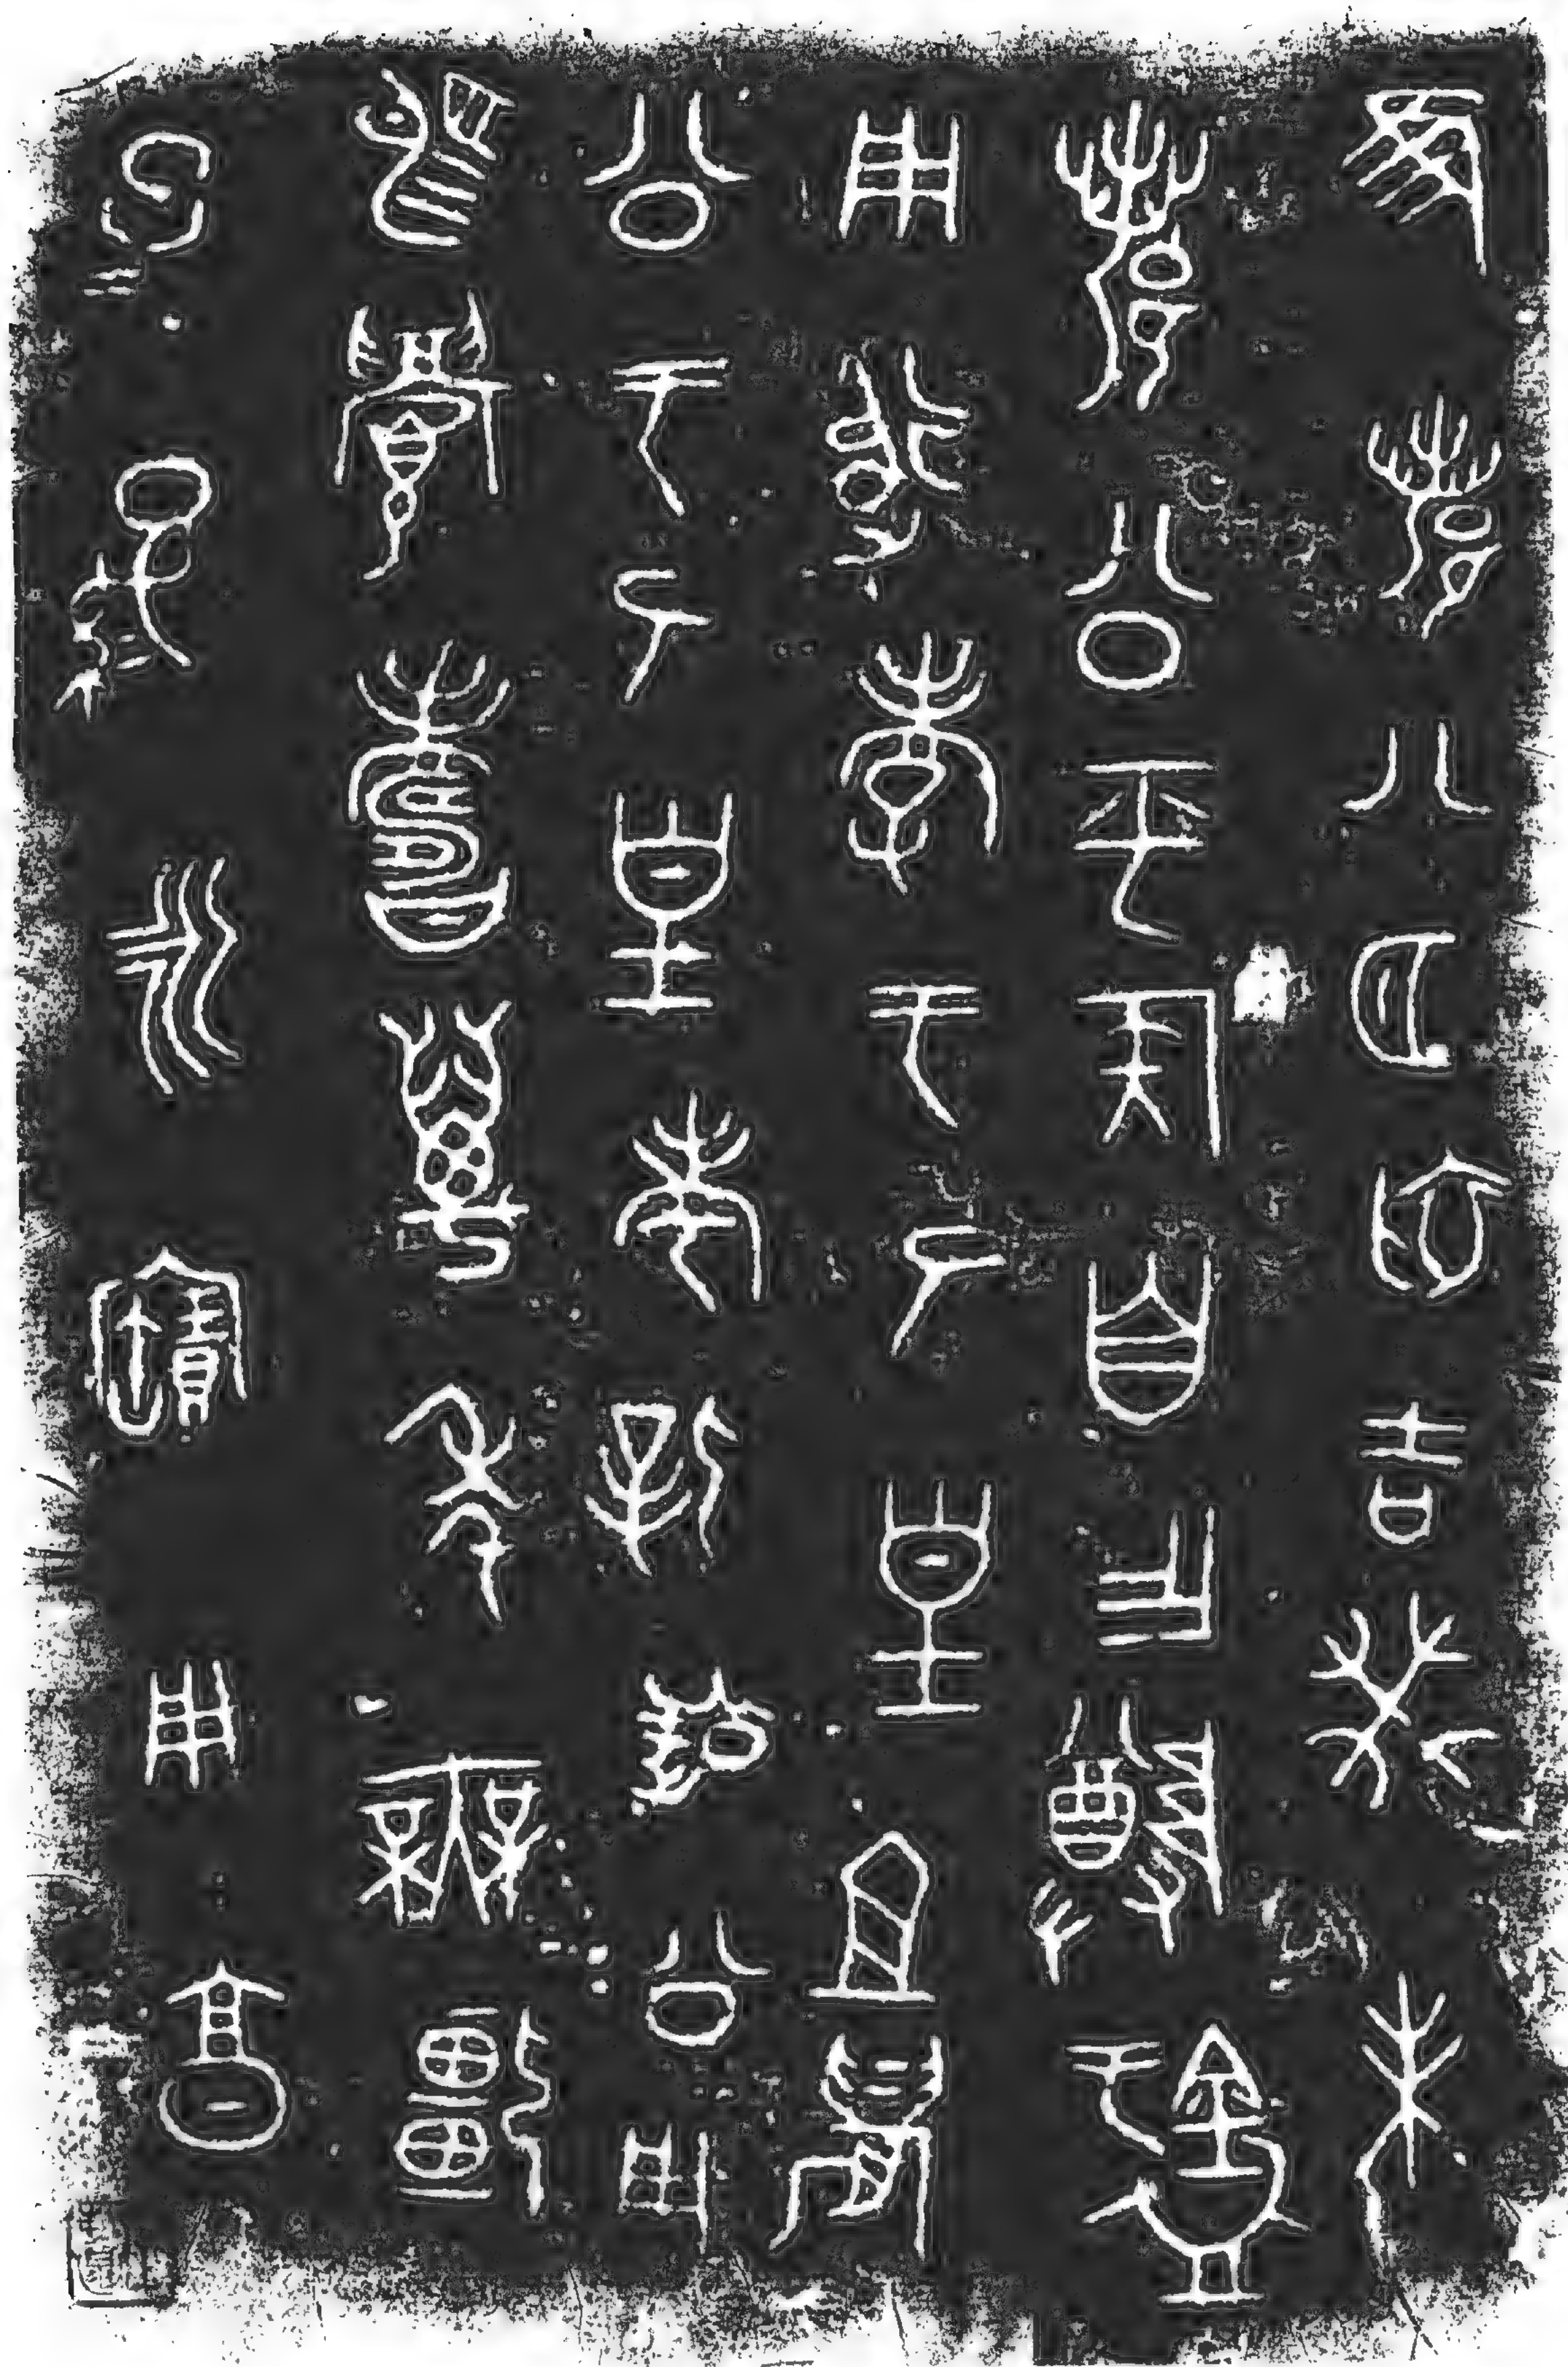 隹鄀八月初吉癸未
鄀公平侯自乍尊
用追孝于厥皇且晨
公于厥皇考屖公用
易眉壽萬年無疆
子=孫=永寶用享